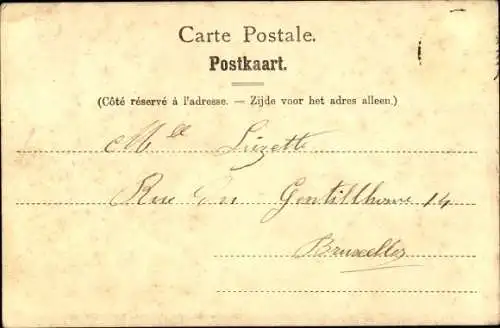 Carte Postale.
Postkaart.
(Côté réservé à l'adresse. — Zijde voor het adres alleen.)
Mlle Suzette
Rue du Gentilhomme 14
Bruxelles